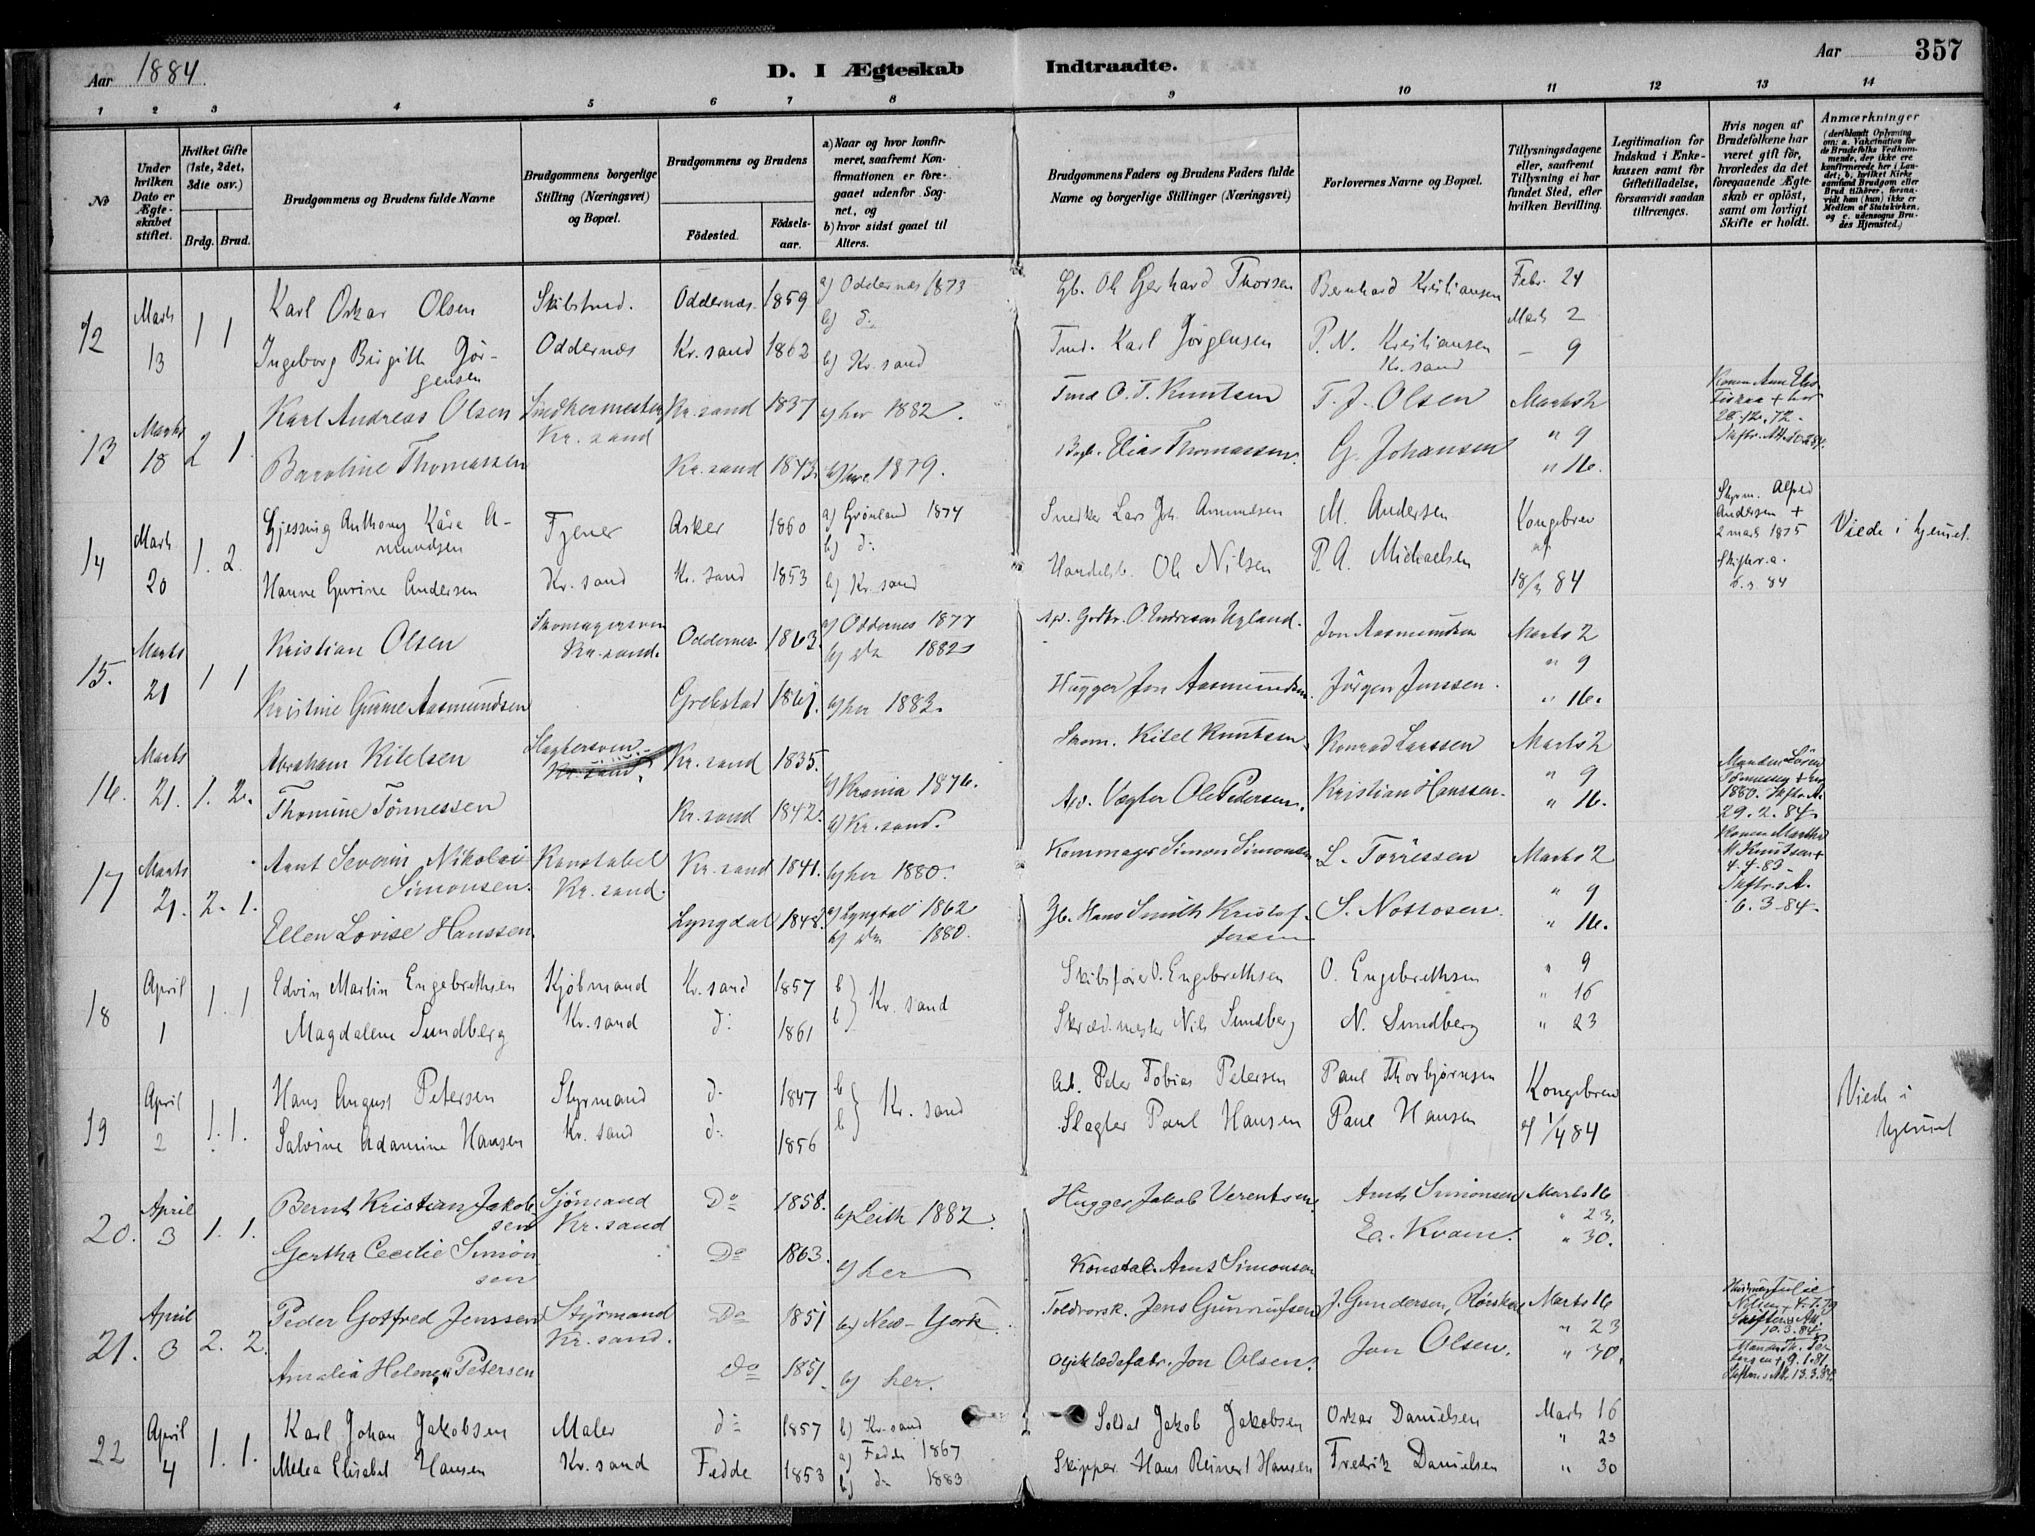 Aar 1884
D. I Ægteskab Indtraadte.
Aar
357
1 2 3 4 5 6 7 8 9 10 11 12 13 14
No
Under hvilken Dato er Ægteskabet stiftet.
Hvilket Gifte (1ste, 2det, 3die osv.)
Brdg. Brud.
Brudgommens og Brudens fulde Navne
Brudgommens borgerlige Stilling (Næringsvei) og Bopæl.
Brudgommens og Brudens
Födested. Födselsaar.
a) Naar og hvor konfirmeret, saafremt Konfirmationen er foregaaet udenfor Sognet, og
b) hvor sidst gaaet til Alters.
Brudgommens Faders og Brudens Faders fulde Navne og borgerlige Stillinger (Næringsvei)
Forlovernes Navne og Bopæl.
Tillysningsdagene eller, saafremt Tillysning ei har fundet Sted, efter hvilken Bevilling.
Legitimation for Indskud i Enkekassen samt for Giftetilladelse, forsaavidt saadan tiltrænges.
Hvis nogen af Brudefolkene har været gift før, hvorledes da det foregaaende Ægteskab er oplöst, samt om lovligt Skifte er holdt.
Anmærkninger (deriblandt Oplysning om: a. Vakcination for de Brudefolks Vedkommende, der ikke ere konfirmerede her i Landet; b. hvilket Kirkesamfund Brudgom eller Brud tilhörer, forsaavidt han (hun) ikke er Medlem af Statskirken, og c. udensogns Brudes Hjemsted.)
12 Marts 13 1 1
Karl Oskar Olsen Oddernæs 1859 a) Oddernæs 1873 b) do Gb. Ole Gerhard Thorsen Bernhard Kristiansen Febr. 24
Ingeborg Birgitte Jörgensen Oddernæs Kr. sand 1862 b) Kr. sand Karl Jörgensen P. N. Kristiansen Kr. sand Marts 2 – 9
13 Marts 18 2 1
Karl Andreas Olsen Snedkermester Kr. sand Kr. sand 1837 her 1882. O. T. Knutsen T. J. Olsen Marts 2
Baroline Thomassen Kr. sand 1843. her 1879. Elias Thomassen. G. Johansen " 9 " 16.
14 Marts 20 1. 2.
Gjessing Anthony Kåre Amundsen Tjener Asker 1860 a) Grönland 1874 b) do Snedker Lars Joh. Amundsen M. Andersen Kongebrev
Hanne Gurine Andersen Kr. sand Kr. sand 1853 b) Kr. sand Handelsb. Ole Nilsen P. A. Michaelsen af 18/3 84
Styrm. Alfred Andersen + 2 marts 1875 Skifter. a.
Viede i hjemmet.
15. Marts 21 1 1
Kristian Olsen Skomagersven Kr. sand. Oddernes 1863. a) Oddernes 1877 b) Do 1882 Jon Aasmundsen Marts 2
Kristine Gurine Aasmundsen Grebstad 1861. her 1883. Hugger Jon Aasmundsen. Jörgen Jenssen. " 9 " 16.
16. Marts 21. 1. 2.
Abraham Kitelsen Slagtersven Kr. sand. Kr. sand 1835. Krania 1876. Skom. Kitel Knutsen Konrad Larssen Marts 2
Thomine Tönnessen Kr. sand 1842. b) Kr. sand. Vægter Ole Pedersen. Kristian Hanssen. " 9 " 16.
1880. 29. 2. 84.
17 Marts 21. 2. 1.
Arnt Severin Nikolai Simonsen. Konstabel Kr. sand. Kr. sand 1841. her 1880. Simon Simonsen L. Torressen Marts 2
Ellen Lovise Hanssen. Lyngdal 1848. a) Lyngdal 1862 b) Do 1880. Gb. Hans Smith Kristoffersen S. Nottosen. " 9 " 16.
4. 4. 83. 6. 3 - 84.
18 April 1 1. 1
Edvin Martin Engebrethsen Kjöbmand Kr. sand 1857 b Kr. sand Skibsförer O. Engebrethsen O. Engebrethsen " 9 " 16
Magdalene Sundberg Kr. sand do 1861 b Skræd. mester Nils Sundberg N. Sundberg " 23
19 April 2 1. 1.
Hans August Petersen Styrmand do 1847 b Kr. sand Arb. Peder Tobias Petersen Paul Thorbjörnsen Kongebrev
Salvine Adamine Hansen Kr. sand do 1856 b Slagter Paul Hansen Paul Hansen af 1/4 84
Viede i hjemmet
20. April 3 1. 1.
Bernt Kristian Jakobsen Sjömand Kr. sand Do 1858. b) Leith 1882. Hugger Jakob Berentsen. Arnt Simonsen Marts 16
Gertha Cecilie Simonsen Do 1863. her Konstab. Arnt Simonsen E. Kvam. " 23. " 30.
21. April 3 2. 2.
Peder Gotfred Jenssen Styrmand Kr. sand. Do 1851 b) New-York. Jens Gunnufsen J. Gundersen, Marts 16
Amalia Helene Petersen Do 1851. b) her. Jon Olsen. Jon Olsen. " 23 " 30.
10. 3. 84. 9. 1. 81. 13. 3. 84.
22 April 4 1. 1.
Karl Johan Jakobsen Maler do 1857 b) Kr. sand Soldat Jakob Jakobsen Oskar Danielsen Marts 16
Melea Elisabet Hansen Kr. sand Fedde 1853 a) Fedde 1867 b) do 1883 Skipper Hans Reinert Hansen Fredrik Danielsen " 23 " 30